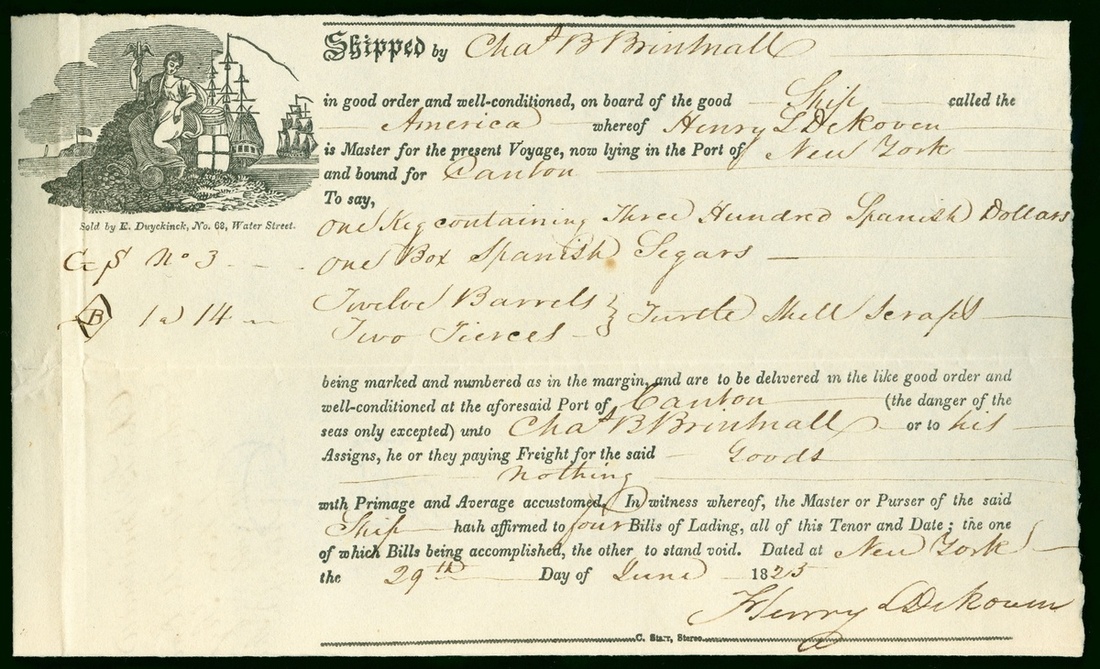 Shipped by Chas B Brintnall
in good order and well-conditioned, on board of the good Ship called the
America whereof Henry L DeKoven
is Master for the present Voyage, now lying in the Port of New York
and bound for Canton
To say,
Sold by E. Duyckinck, No. 68, Water Street.
one Keg containing Three Hundred Spanish Dollars
No 3 one Box Spanish Segars
B 1 a 14 Twelve Barrels } Turtle Shell Scraps
Two Tierces
being marked and numbered as in the margin, and are to be delivered in the like good order and
well-conditioned at the aforesaid Port of Canton (the danger of the
seas only excepted) unto Chas B Brintnall or to his
Assigns, he or they paying Freight for the said Goods
nothing
with Primage and Average accustomed. In witness whereof, the Master or Purser of the said
Ship hath affirmed to four Bills of Lading, all of this Tenor and Date; the one
of which Bills being accomplished, the other to stand void. Dated at New York
the 29th Day of June 1825
Henry L DeKoven
C. Starr, Stereo.